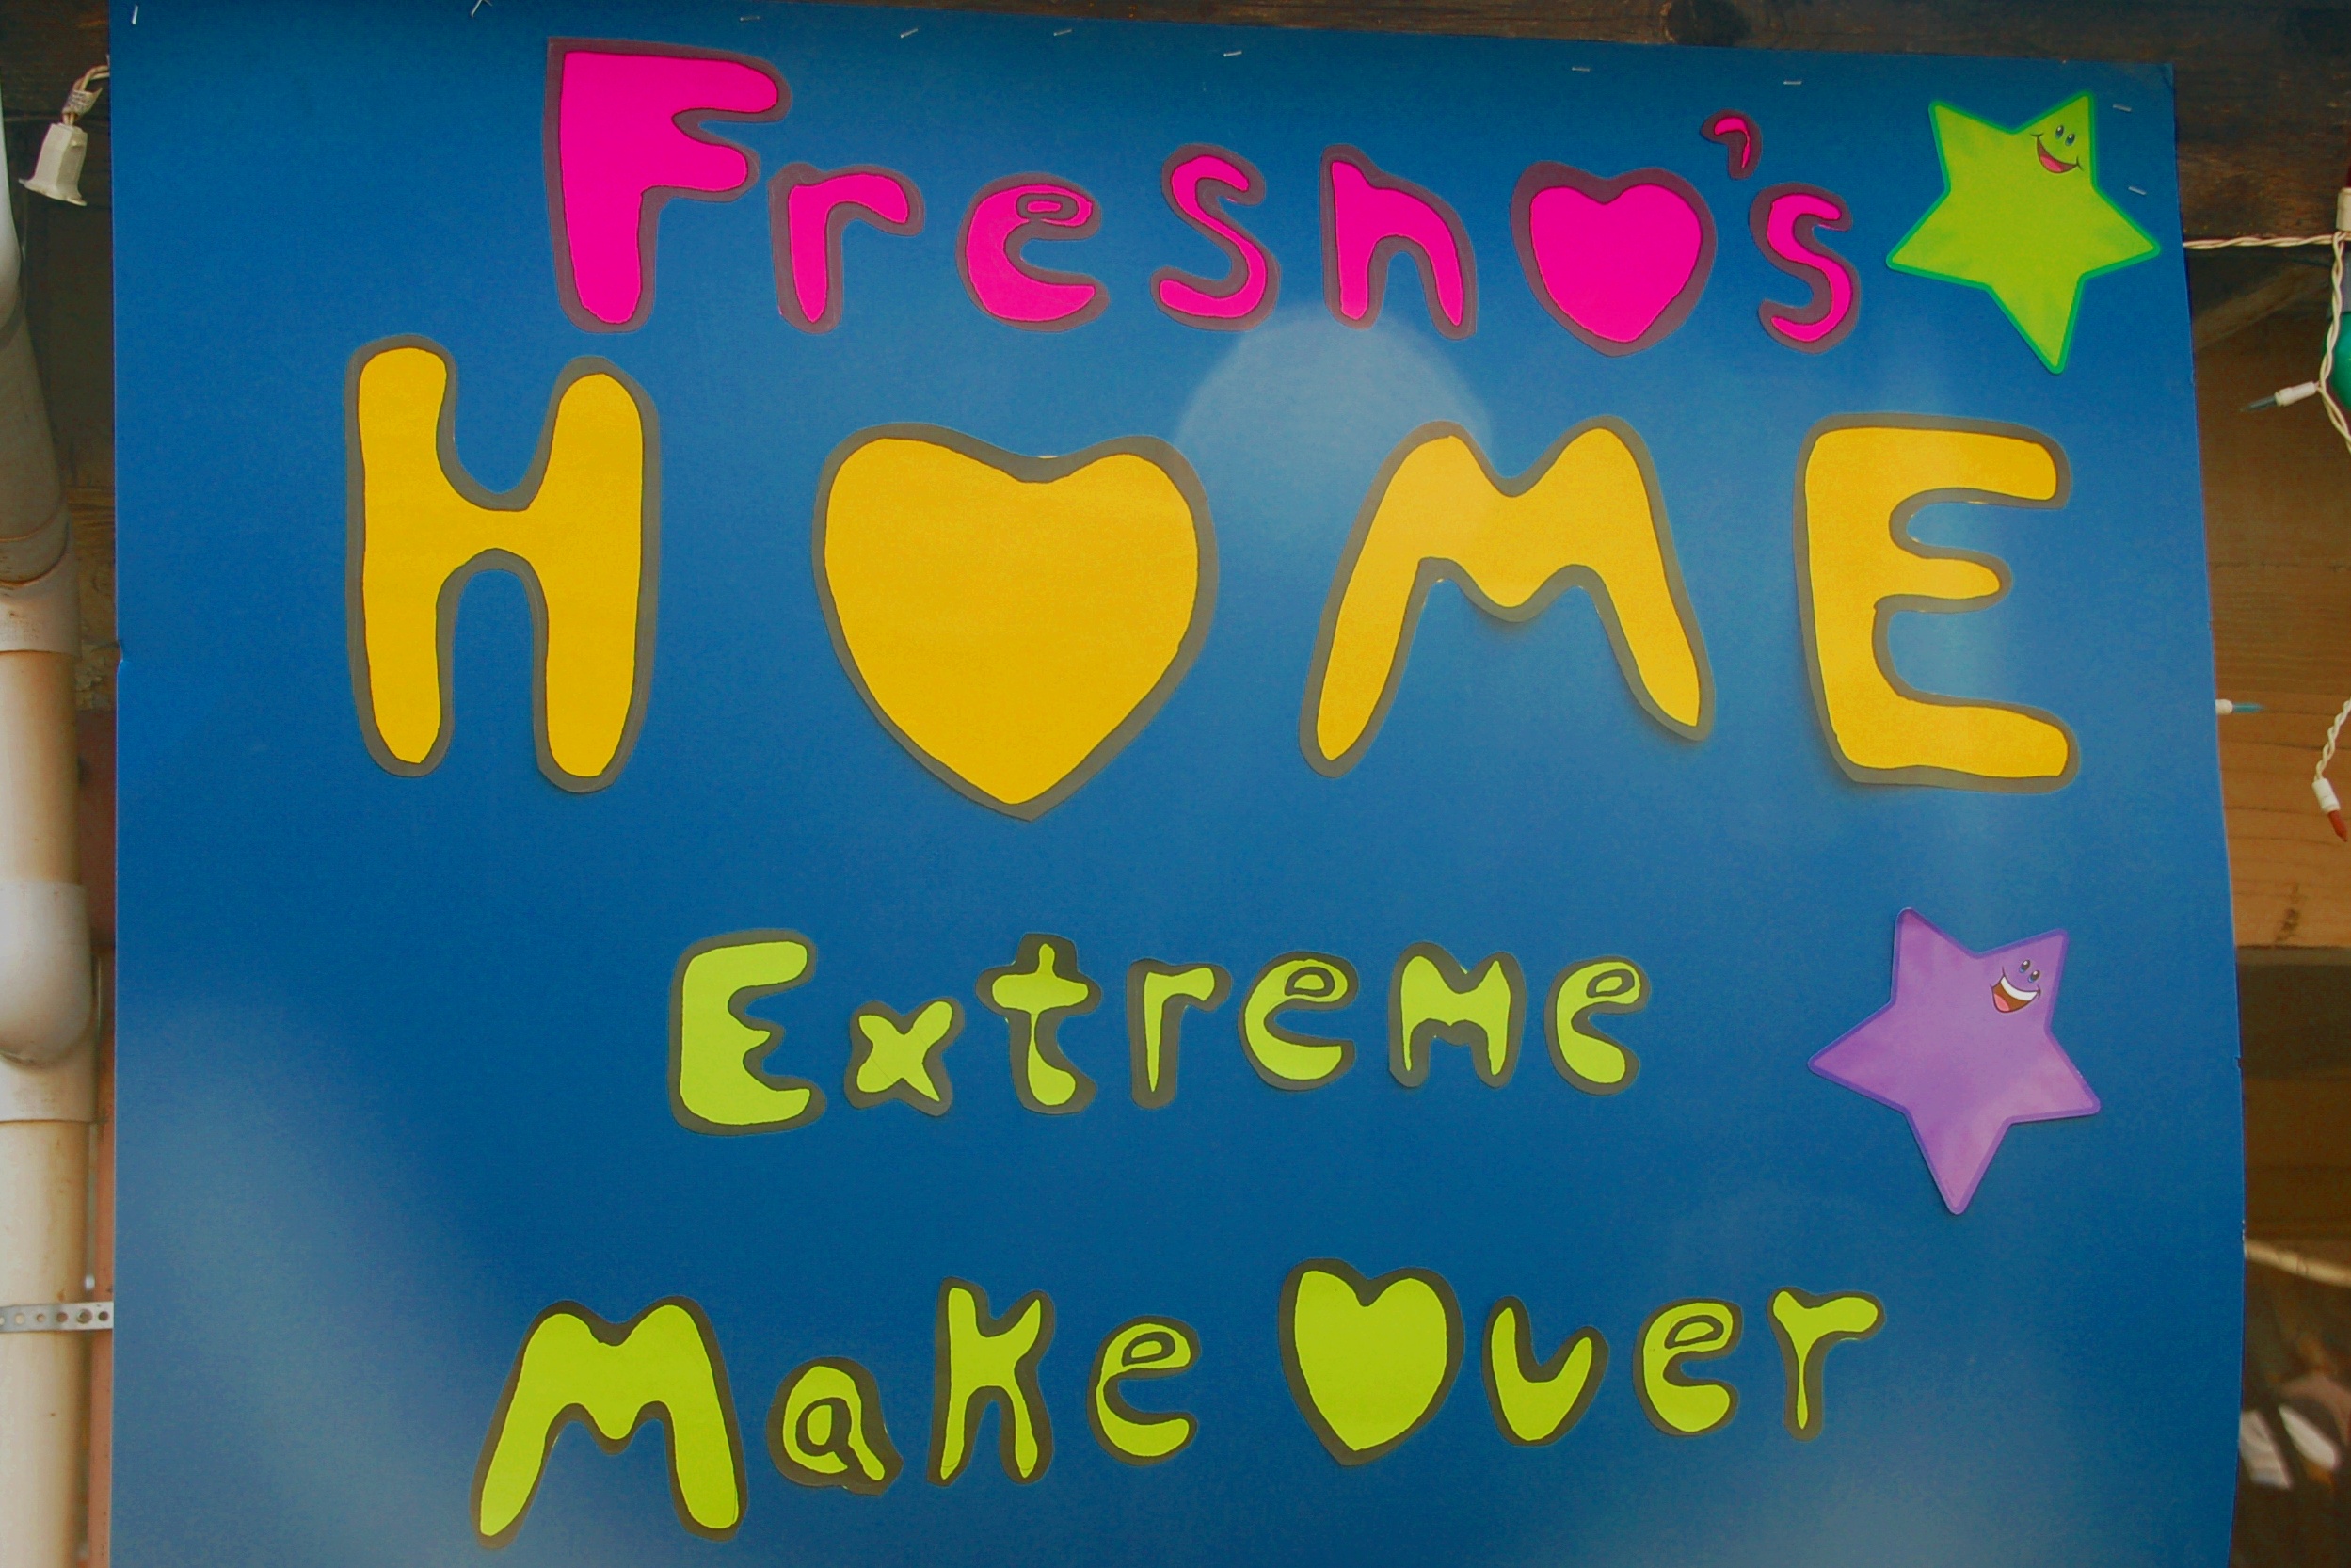 Fresno's
HOME
Extreme
Make Over